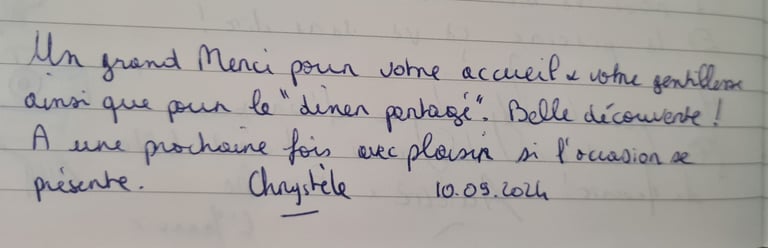 Un grand Merci pour votre accueil & votre gentillesse
ainsi que pour le "dîner partagé". Belle découverte !
A une prochaine fois avec plaisir si l'occasion se
présente. Chrystèle 10.09.2024